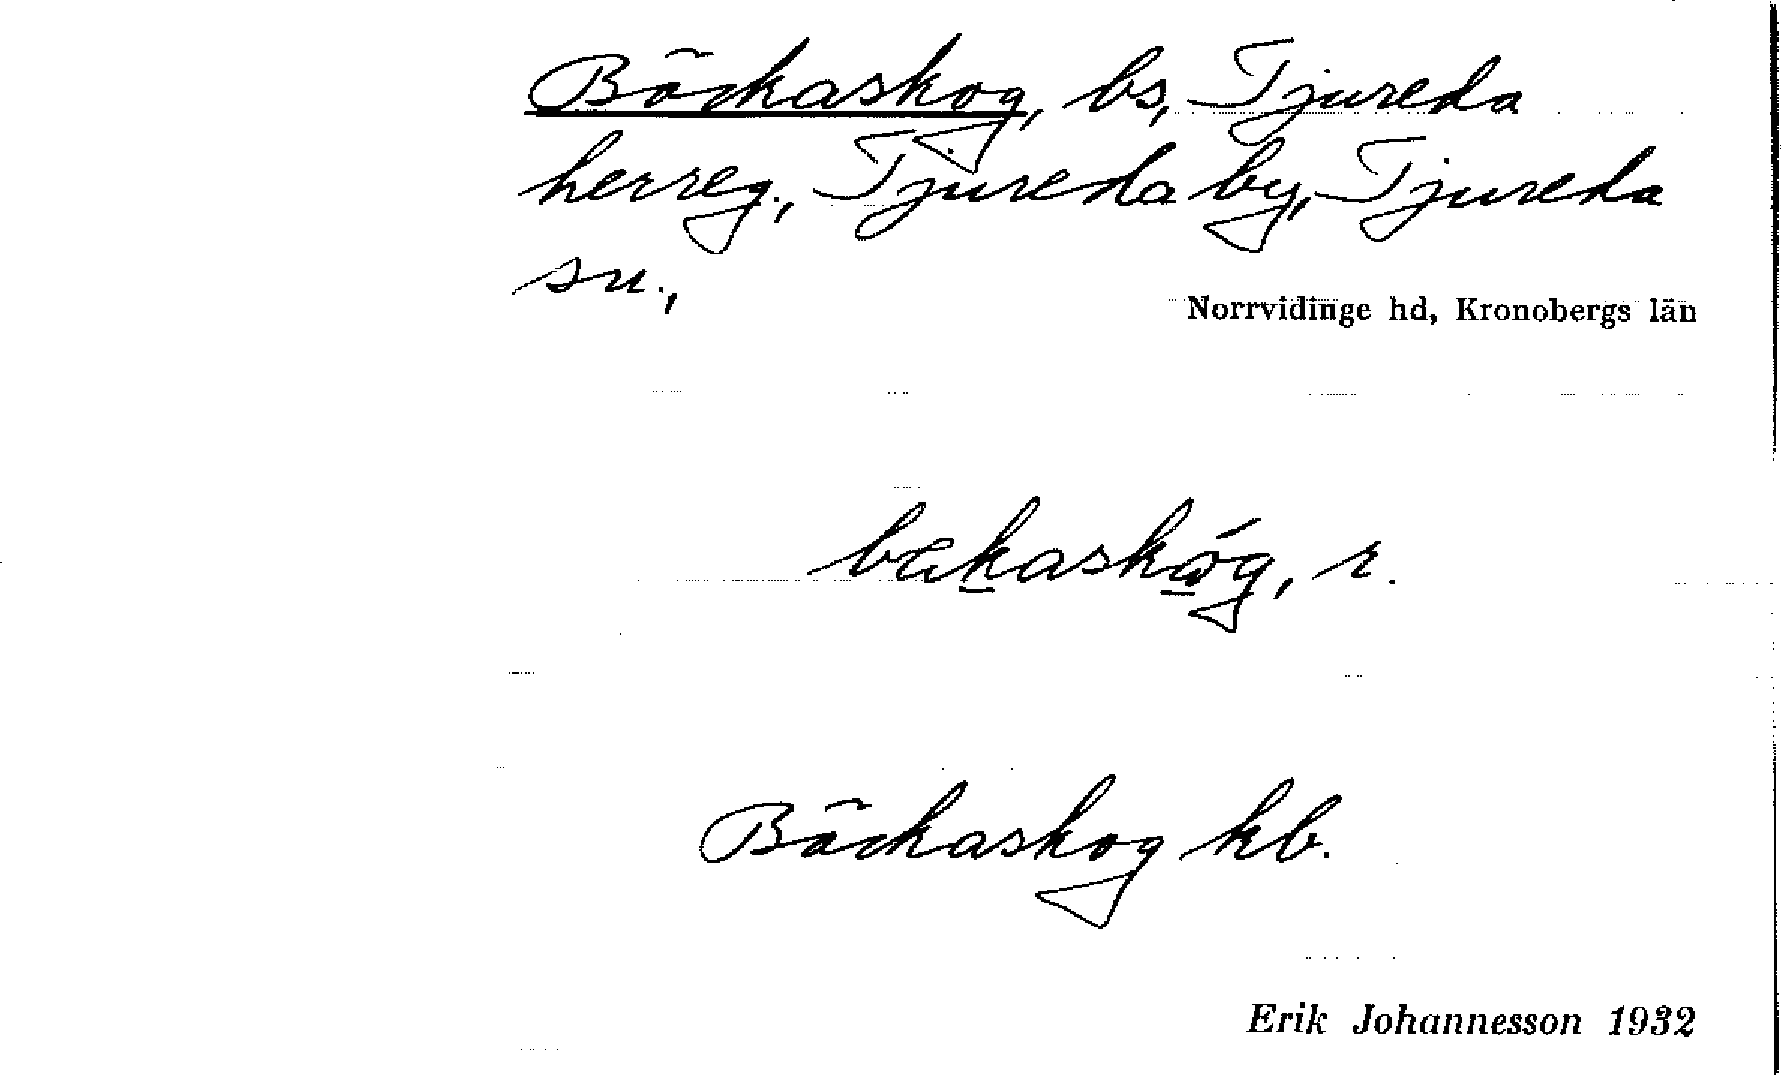 Bäckaskog, bs, Tjureda
herreg., Tjureda by, Tjureda
sn.,
Norrvidinge hd, Kronobergs län
bækaskóg, r.
Bäckaskog kb.
Erik Johannesson 1932